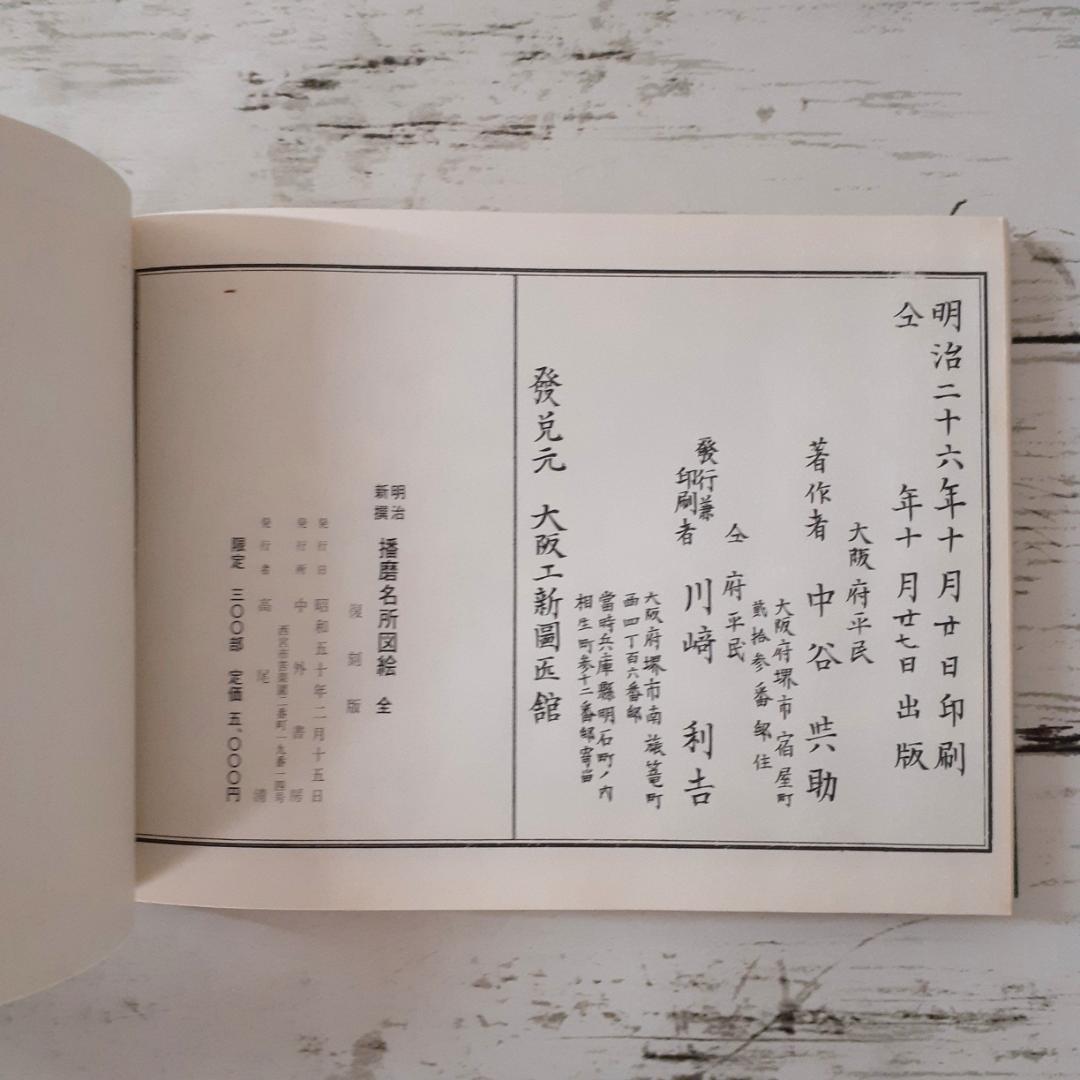 明治二十六年十月廿日印刷
仝年十月廿七日出版
大阪府平民
著作者 中谷 與助
大阪府堺市宿屋町
貳拾参番邸住
仝府平民
發行兼
印刷者 川﨑利吉
大阪府堺市南旅篭町
西四丁百六番邸
當時兵庫縣明石町ノ内
相生町参十二番邸寄留
發兌元 大阪工新圖匠館
明治
新撰 播磨名所図絵 全
復刻版
発行日 昭和五十年二月十五日
発行所 中外書房
西宮市苦楽園二番町一九番一四号
発行者 高尾
限定 三〇〇部 定価 五、〇〇〇円